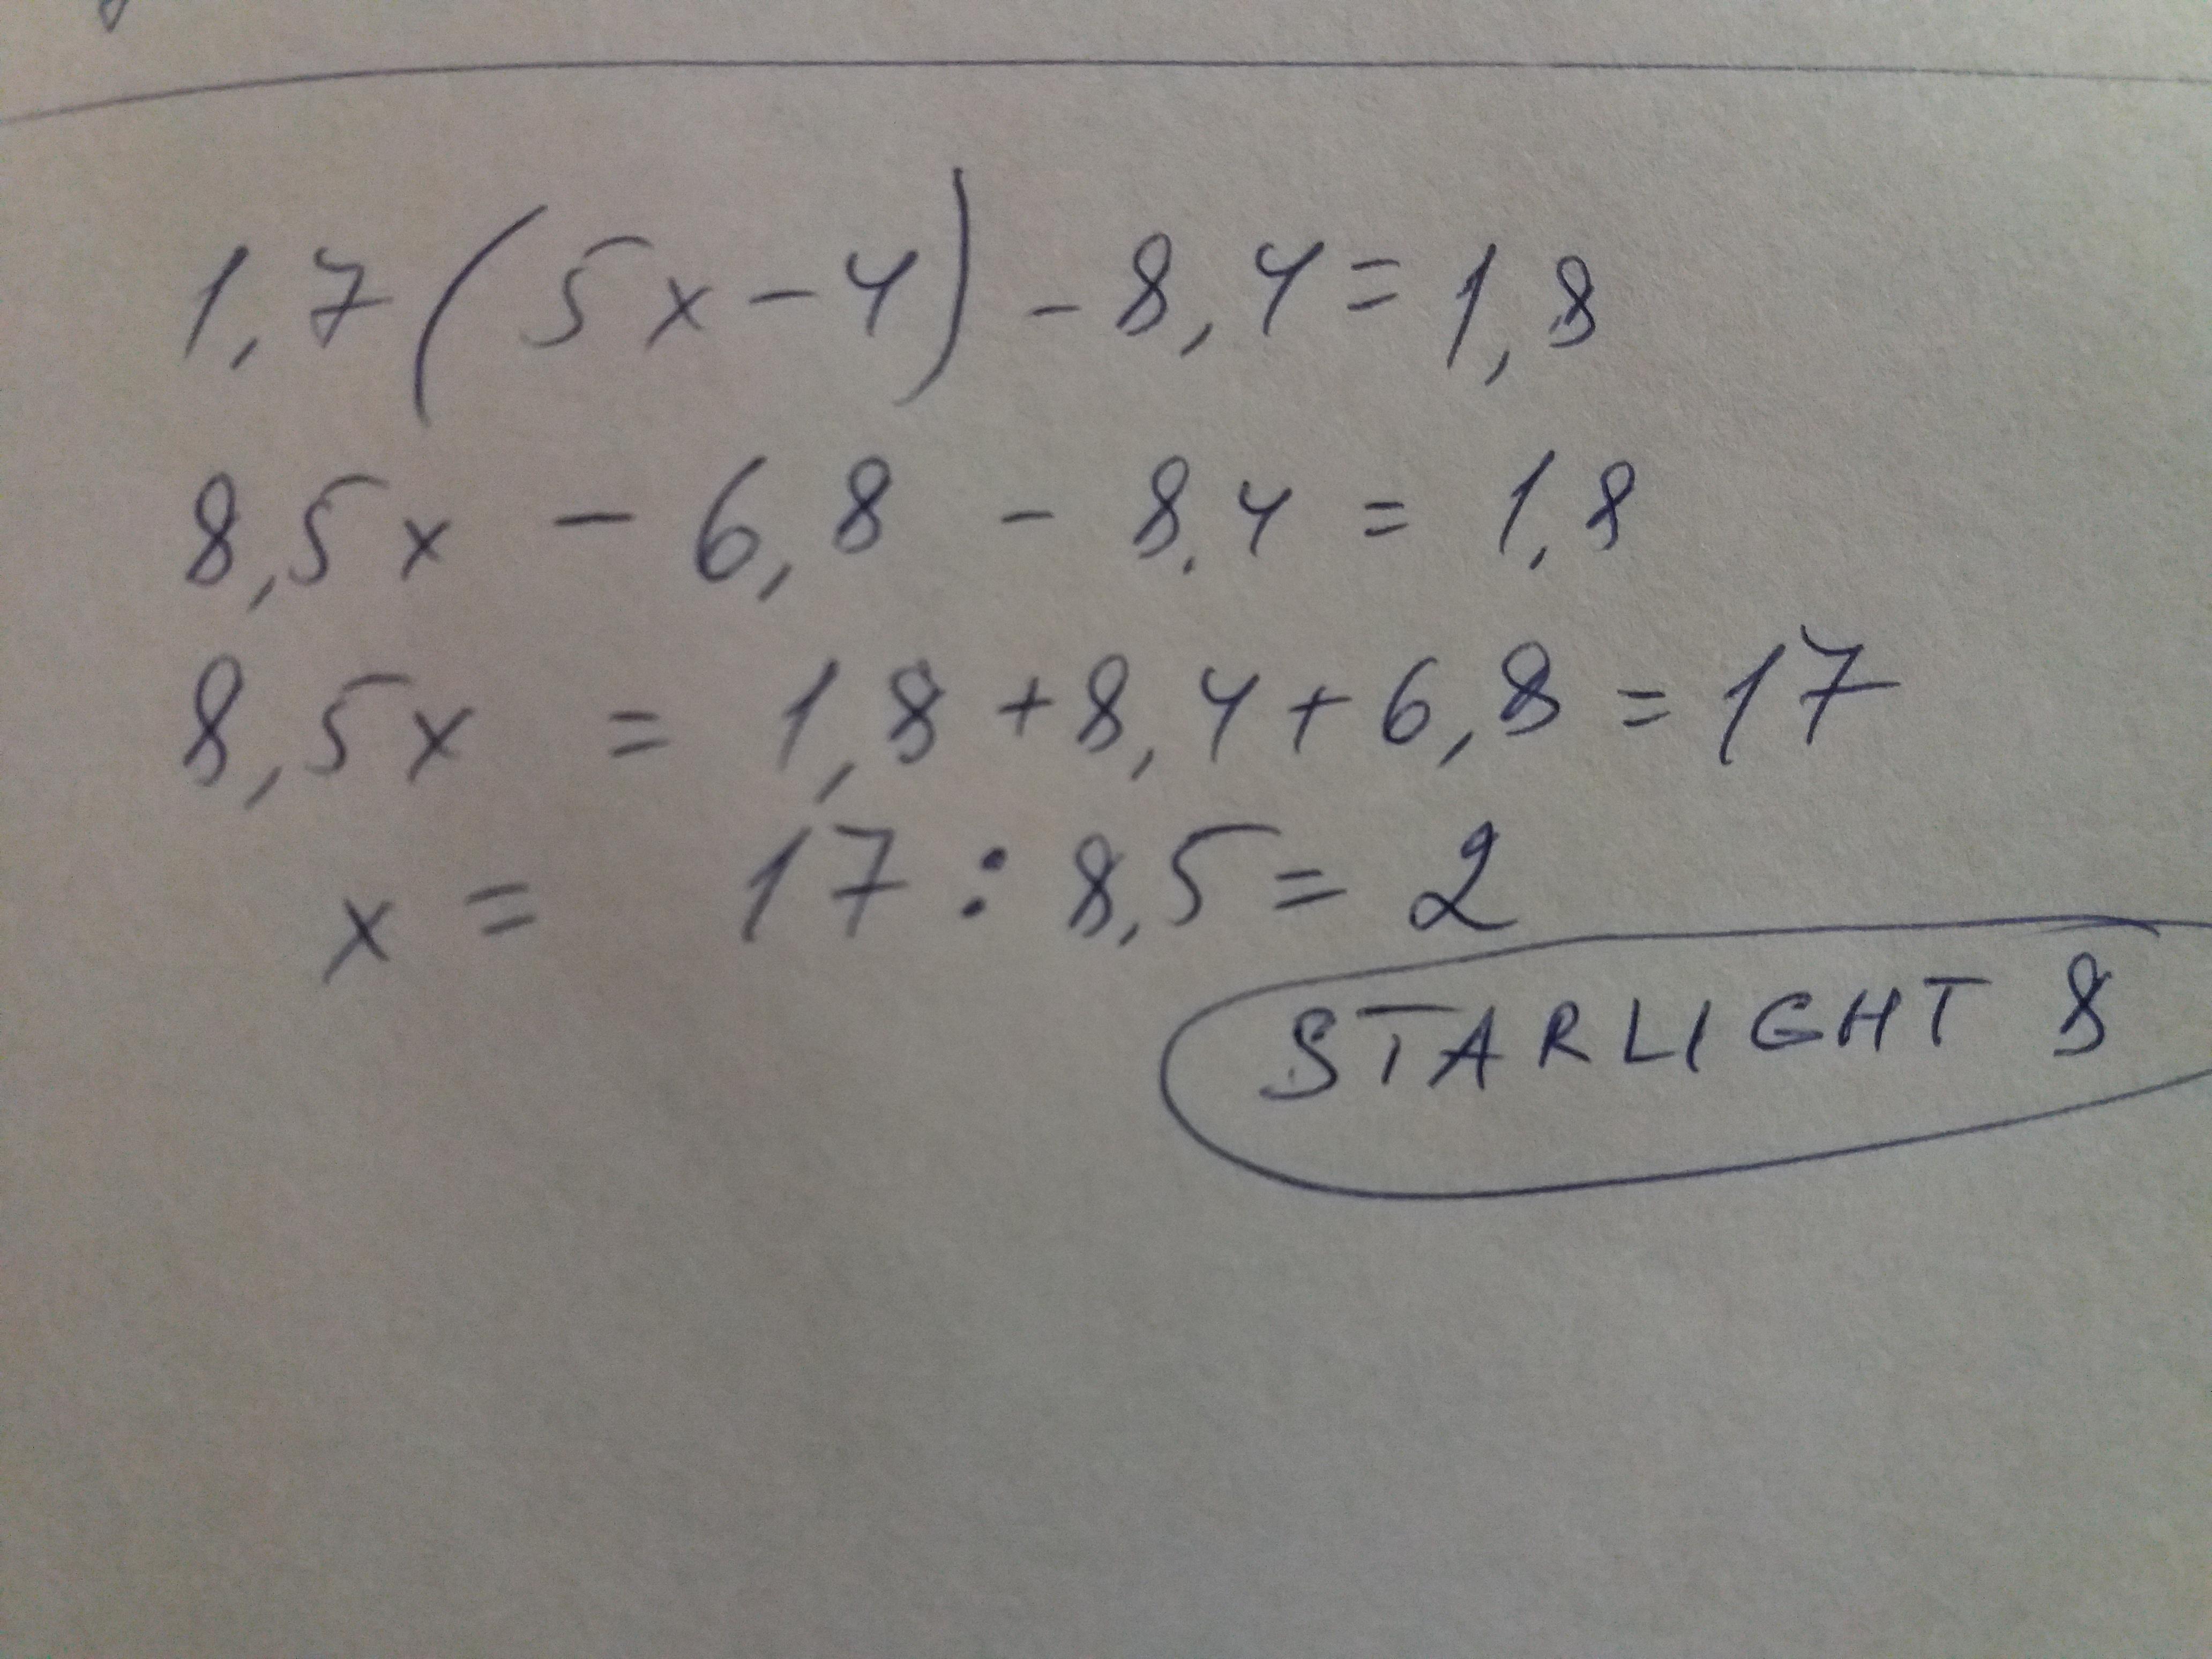 1,7(5x-4)-8,4=1,8
8,5x - 6,8 - 8.4 = 1.8
8,5x = 1,8+8,4+6,8=17
x = 17:8,5=2
STARLIGHT 8